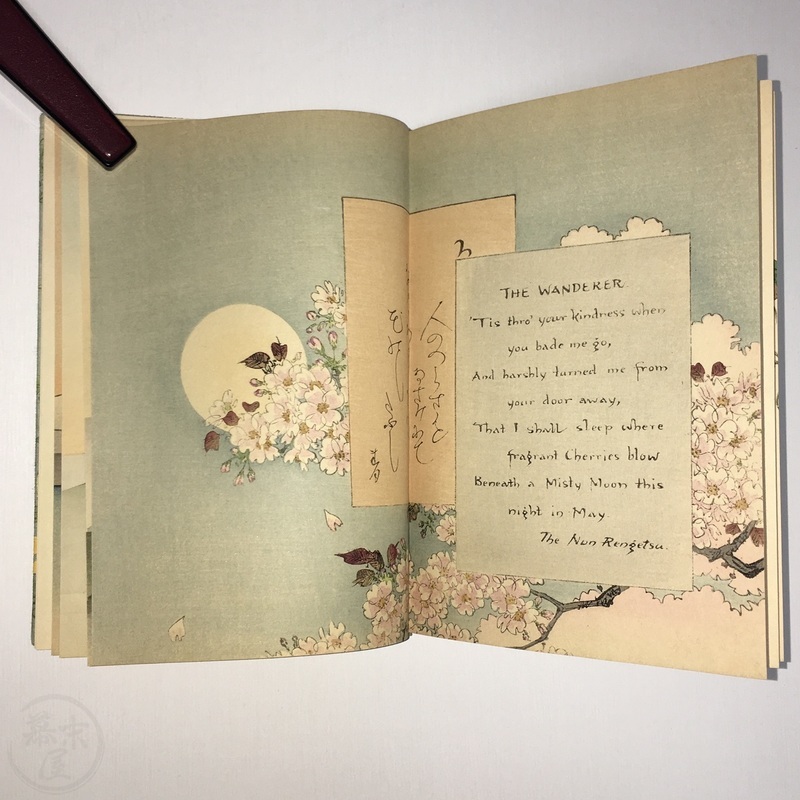 人のつらさを
なさけにて
THE WANDERER.
'Tis thro' your kindness when
you bade me go,
And harshly turned me from
your door away,
That I shall sleep where
fragrant Cherries blow
Beneath a Misty Moon this
night in May.
The Nun Rengetsu.